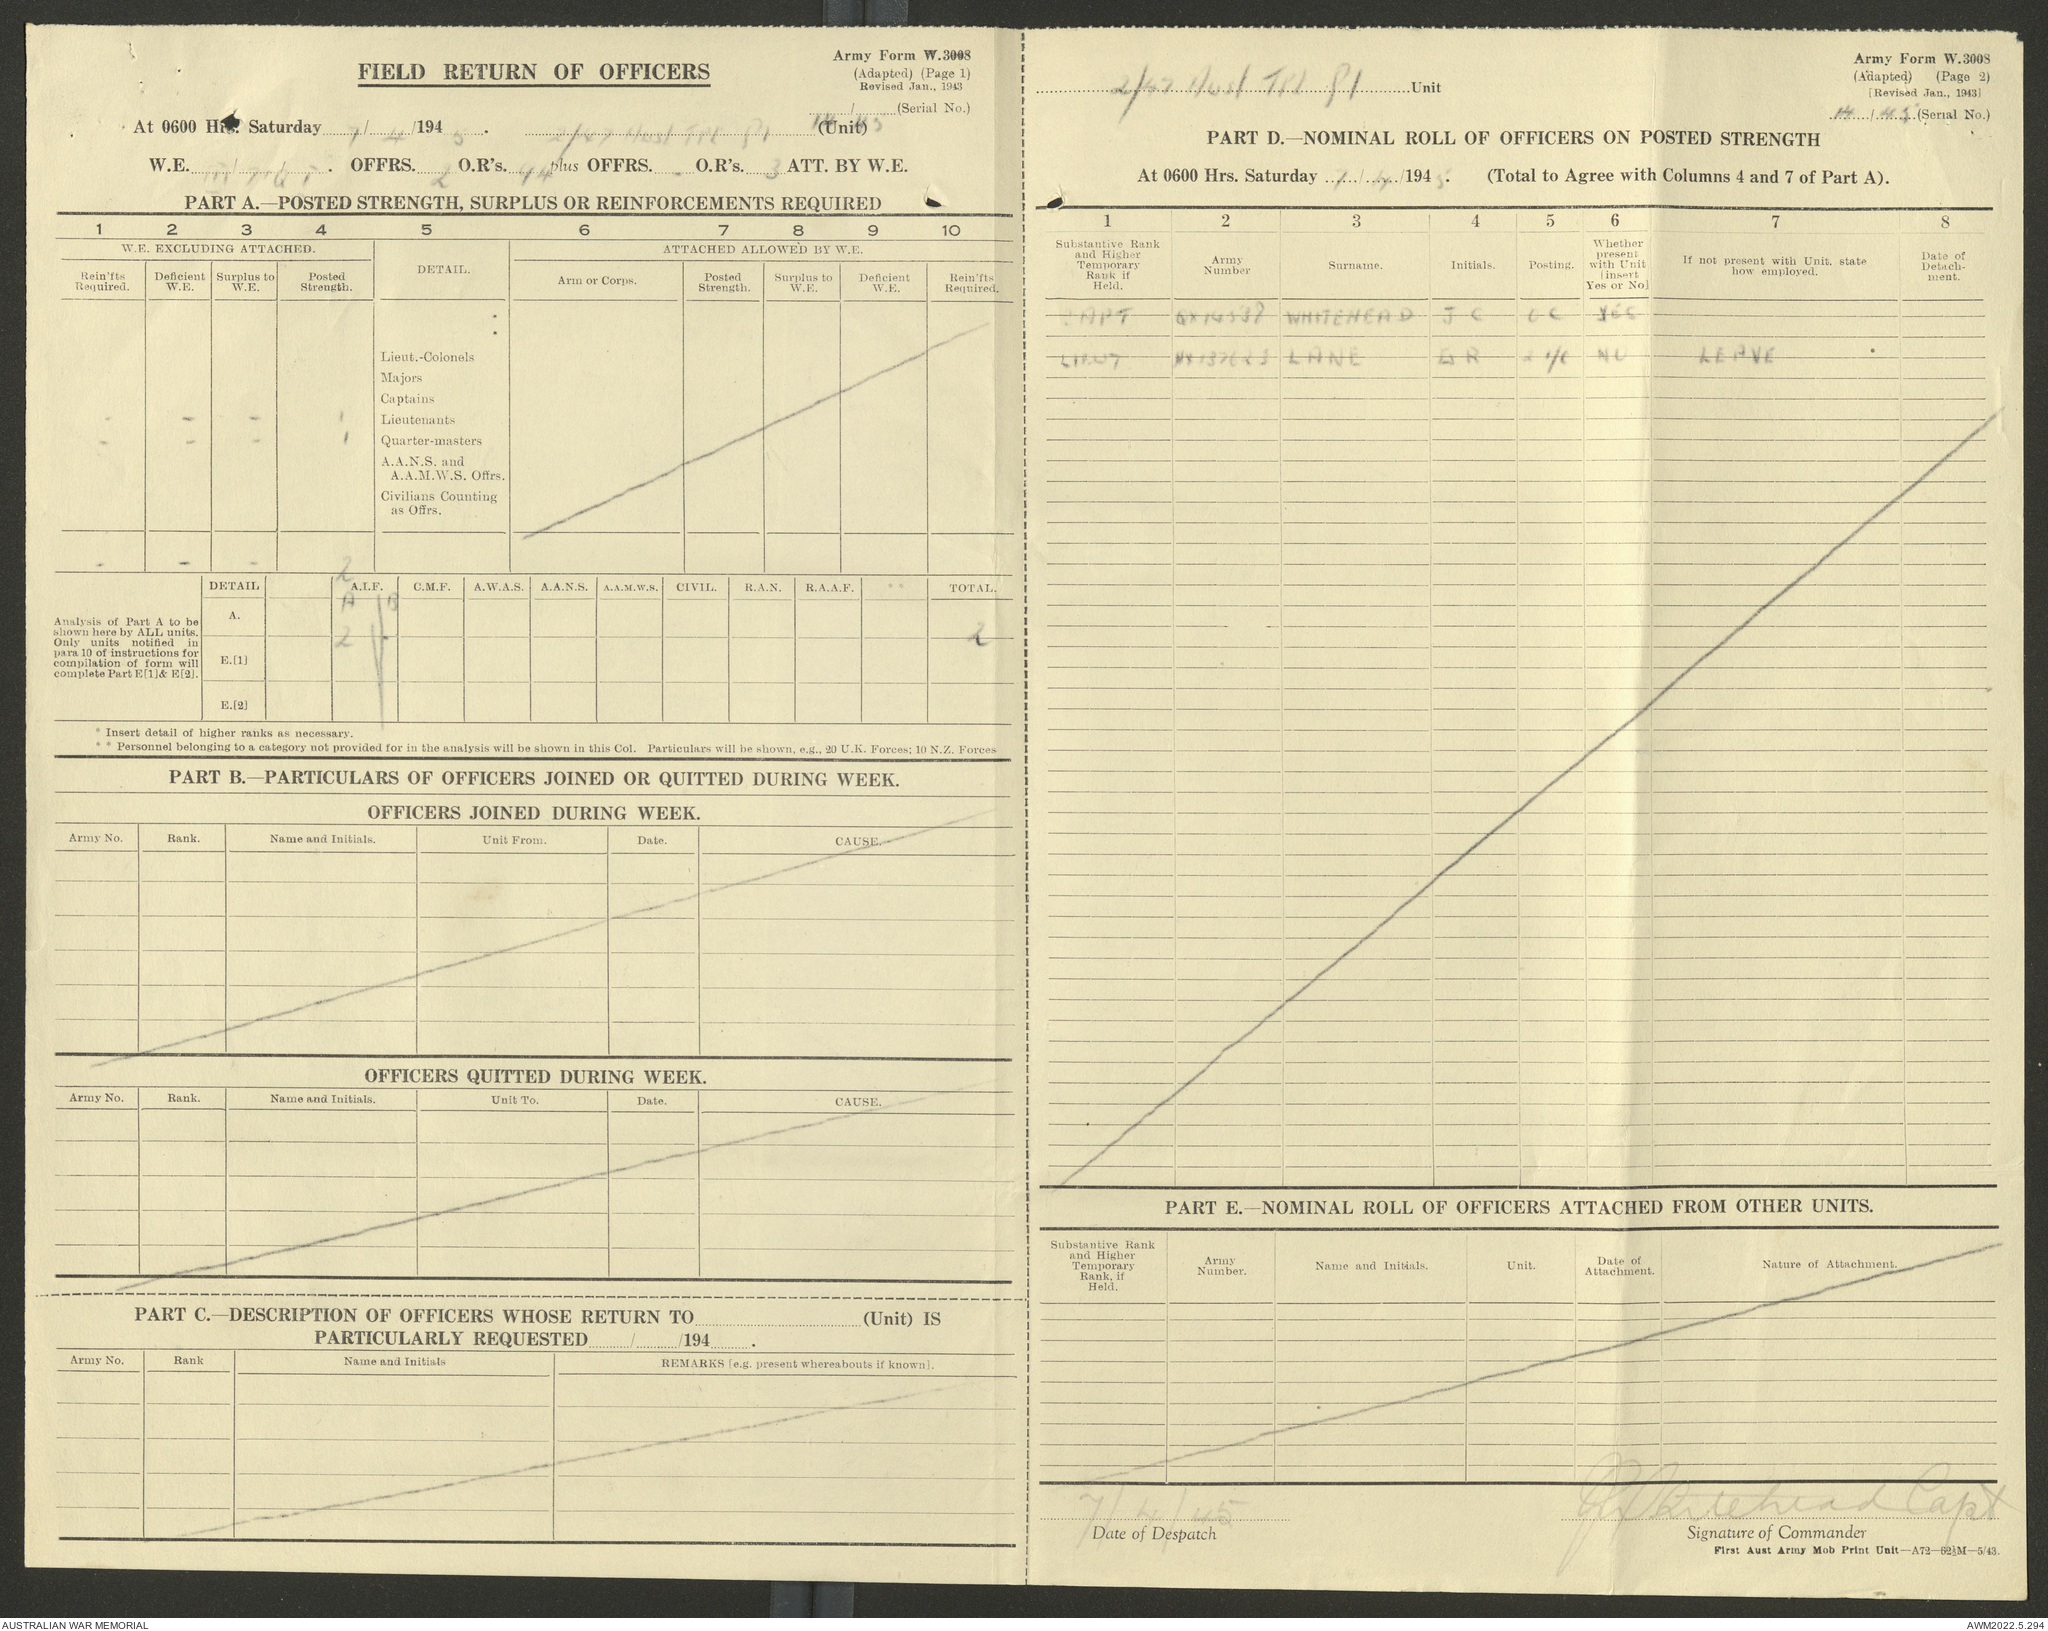 FIELD RETURN OF OFFICERS
Army Form W.3008
(Adapted) (Page 1)
Revised Jan., 1943
14/45 (Serial No.)
At 0600 Hrs. Saturday 7/4/1945. 2/47 Aust Tpt Pl (Unit)
W.E. III/ / . OFFRS. 2 O.R's. 94 plus OFFRS. - O.R's. 3 ATT. BY W.E.
PART A.—POSTED STRENGTH, SURPLUS OR REINFORCEMENTS REQUIRED
1 2 3 4 5 6 7 8 9 10
W.E. EXCLUDING ATTACHED. DETAIL. ATTACHED ALLOWED BY W.E.
Rein'fts Required. Deficient W.E. Surplus to W.E. Posted Strength. Arm or Corps. Posted Strength. Surplus to W.E. Deficient W.E. Rein'fts Required.
Lieut.-Colonels
Majors
Captains
- - - 1 Lieutenants
- - - 1 Quarter-masters
A.A.N.S. and
A.A.M.W.S. Offrs.
Civilians Counting
as Offrs.
- - - 2
Analysis of Part A to be shown here by ALL units. Only units notified in para 10 of instructions for compilation of form will complete Part E[1] & E[2].
DETAIL A.I.F. C.M.F. A.W.A.S. A.A.N.S. A.A.M.W.S. CIVIL. R.A.N. R.A.A.F. ** TOTAL.
A. A B
2 - 2
E.[1]
E.[2]
* Insert detail of higher ranks as necessary.
** Personnel belonging to a category not provided for in the analysis will be shown in this Col. Particulars will be shown, e.g., 20 U.K. Forces; 10 N.Z. Forces
PART B.—PARTICULARS OF OFFICERS JOINED OR QUITTED DURING WEEK.
OFFICERS JOINED DURING WEEK.
Army No. Rank. Name and Initials. Unit From. Date. CAUSE.
OFFICERS QUITTED DURING WEEK.
Army No. Rank. Name and Initials. Unit To. Date. CAUSE.
PART C.—DESCRIPTION OF OFFICERS WHOSE RETURN TO (Unit) IS
PARTICULARLY REQUESTED / /194 .
Army No. Rank Name and Initials REMARKS [e.g. present whereabouts if known].
2/47 Aust Tpt Pl Unit
Army Form W.3008
(Adapted) (Page 2)
[Revised Jan., 1943]
14/45 (Serial No.)
PART D.—NOMINAL ROLL OF OFFICERS ON POSTED STRENGTH
At 0600 Hrs. Saturday 7/4/1945. (Total to Agree with Columns 4 and 7 of Part A).
1 2 3 4 5 6 7 8
Substantive Rank and Higher Temporary Rank if Held. Army Number Surname. Initials. Posting. Whether present with Unit [insert Yes or No] If not present with Unit, state how employed. Date of Detachment.
CAPT WHITEHEAD J C OC YES
LIEUT LANE R 2 i/c NO LEAVE
PART E.—NOMINAL ROLL OF OFFICERS ATTACHED FROM OTHER UNITS.
Substantive Rank and Higher Temporary Rank, if Held. Army Number. Name and Initials. Unit. Date of Attachment. Nature of Attachment.
7/4/45
Date of Despatch
Whitehead Capt
Signature of Commander
First Aust Army Mob Print Unit—A72—62½M—5/43.
AUSTRALIAN WAR MEMORIAL
AWM2022.5.294